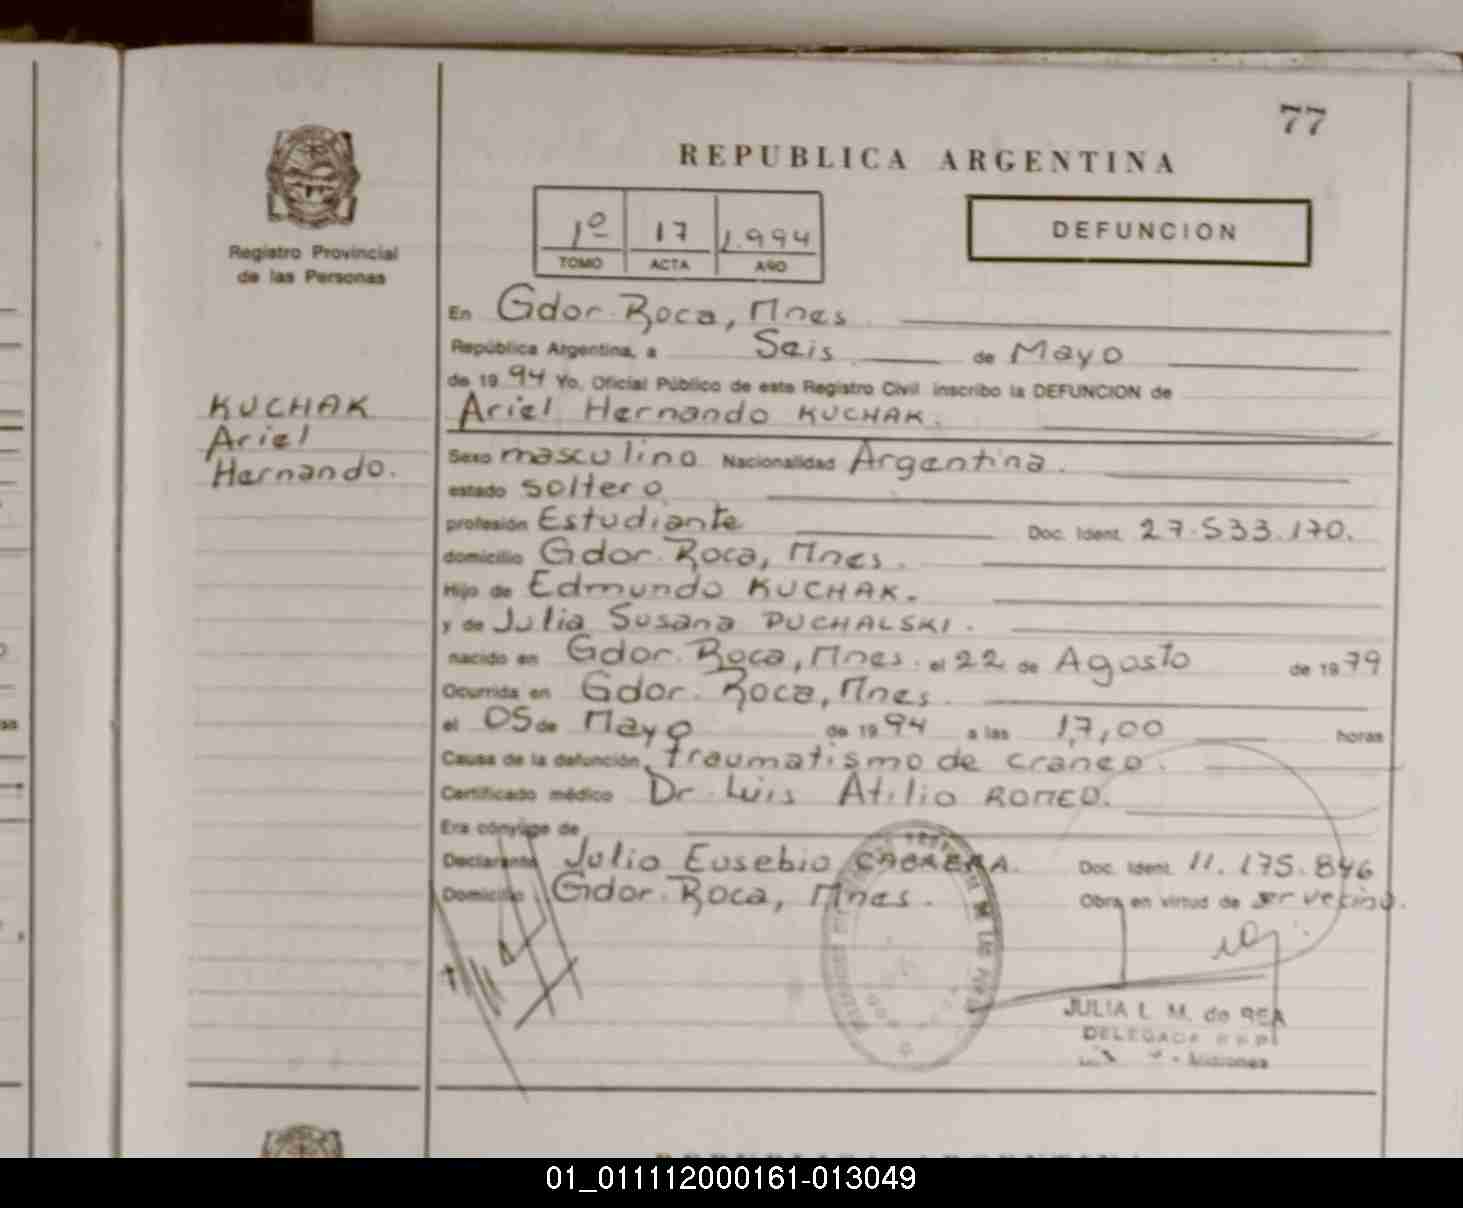 77
REPUBLICA ARGENTINA
Registro Provincial
de las Personas
1º 17 1.994
TOMO ACTA AÑO
DEFUNCION
KUCHAK
Ariel
Hernando.
En Gdor. Roca, Mnes.
República Argentina, a Seis de Mayo
de 19 94 Yo, Oficial Público de este Registro Civil inscribo la DEFUNCION de
Ariel Hernando KUCHAK.
Sexo masculino Nacionalidad Argentina.
estado soltero
profesión Estudiante Doc. Ident. 27.533.170.
domicilio Gdor. Roca, Mnes.
Hijo de Edmundo KUCHAK.
y de Julia Susana PUCHALSKI.
nacido en Gdor. Roca, Mnes. el 22 de Agosto de 19 79
Ocurrida en Gdor. Roca, Mnes.
el 05 de Mayo de 19 94 a las 17,00 horas
Causa de la defunción traumatismo de craneo.
Certificado médico Dr. Luis Atilio ROMEO.
Era cónyuge de
Declarante Julio Eusebio CABRERA. Doc. Ident. 11.175.846
Domicilio Gdor. Roca, Mnes. Obra en virtud de ser vecino.
JULIA L. M. de REA
DELEGADA
Misiones
REPUBLICA ARGENTINA
01_011112000161-013049